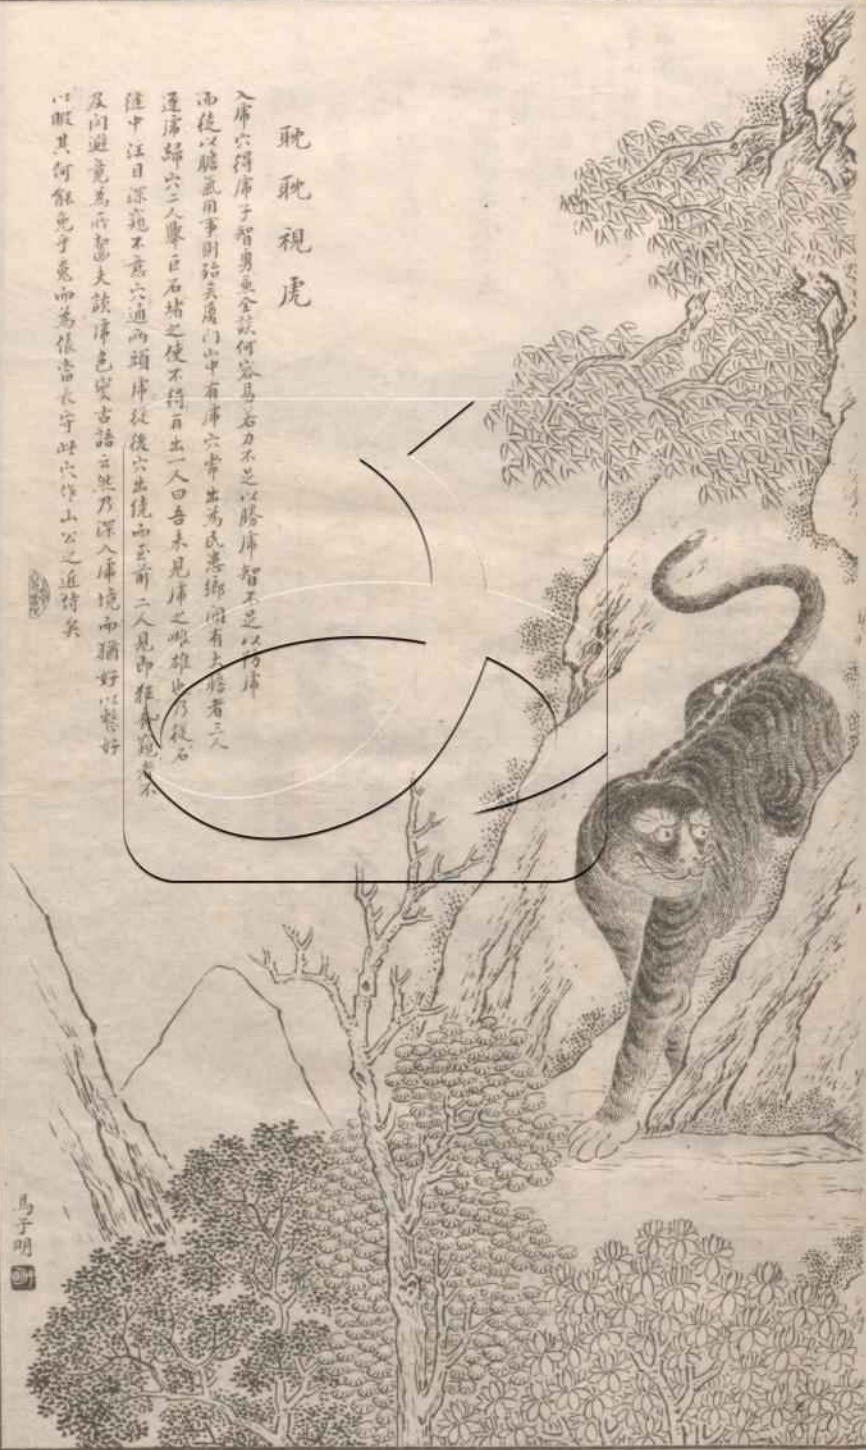 耽耽視虎
入虎穴得虎子智勇兼全談何容易若力不足以勝虎智不足以防虎
而徒以膽氣用事則殆矣廈門山中有虎穴常出為民患鄉間有大膽者三人
逐虎歸穴二人舉巨石堵之使不得自出一人曰吾未見虎之雌雄也乃從石
縫中注目深窺不意穴通兩頭虎從後穴出繞而至前二人見即狂奔窺者不
及閃避竟為所噬夫談虎色變古語云然乃深入虎境而猶好以整好
以暇其何能免乎死而為倀當長守此穴作山公之近侍矣
馬子明